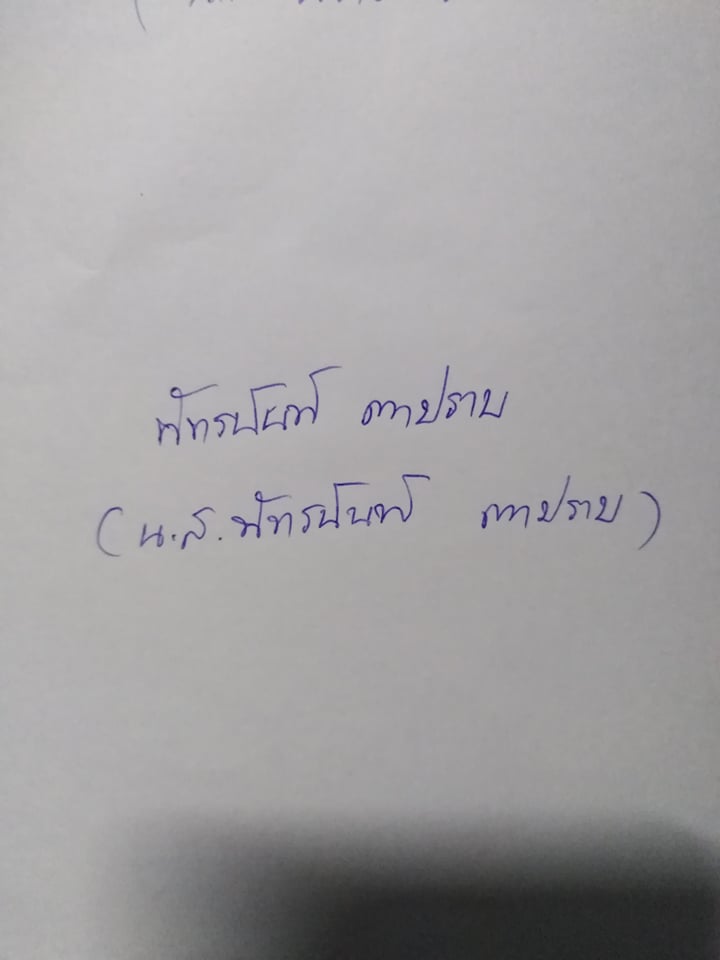 พัทรนันท์ ตาปราบ
(น.ส.พัทรนันท์ ตาปราบ)